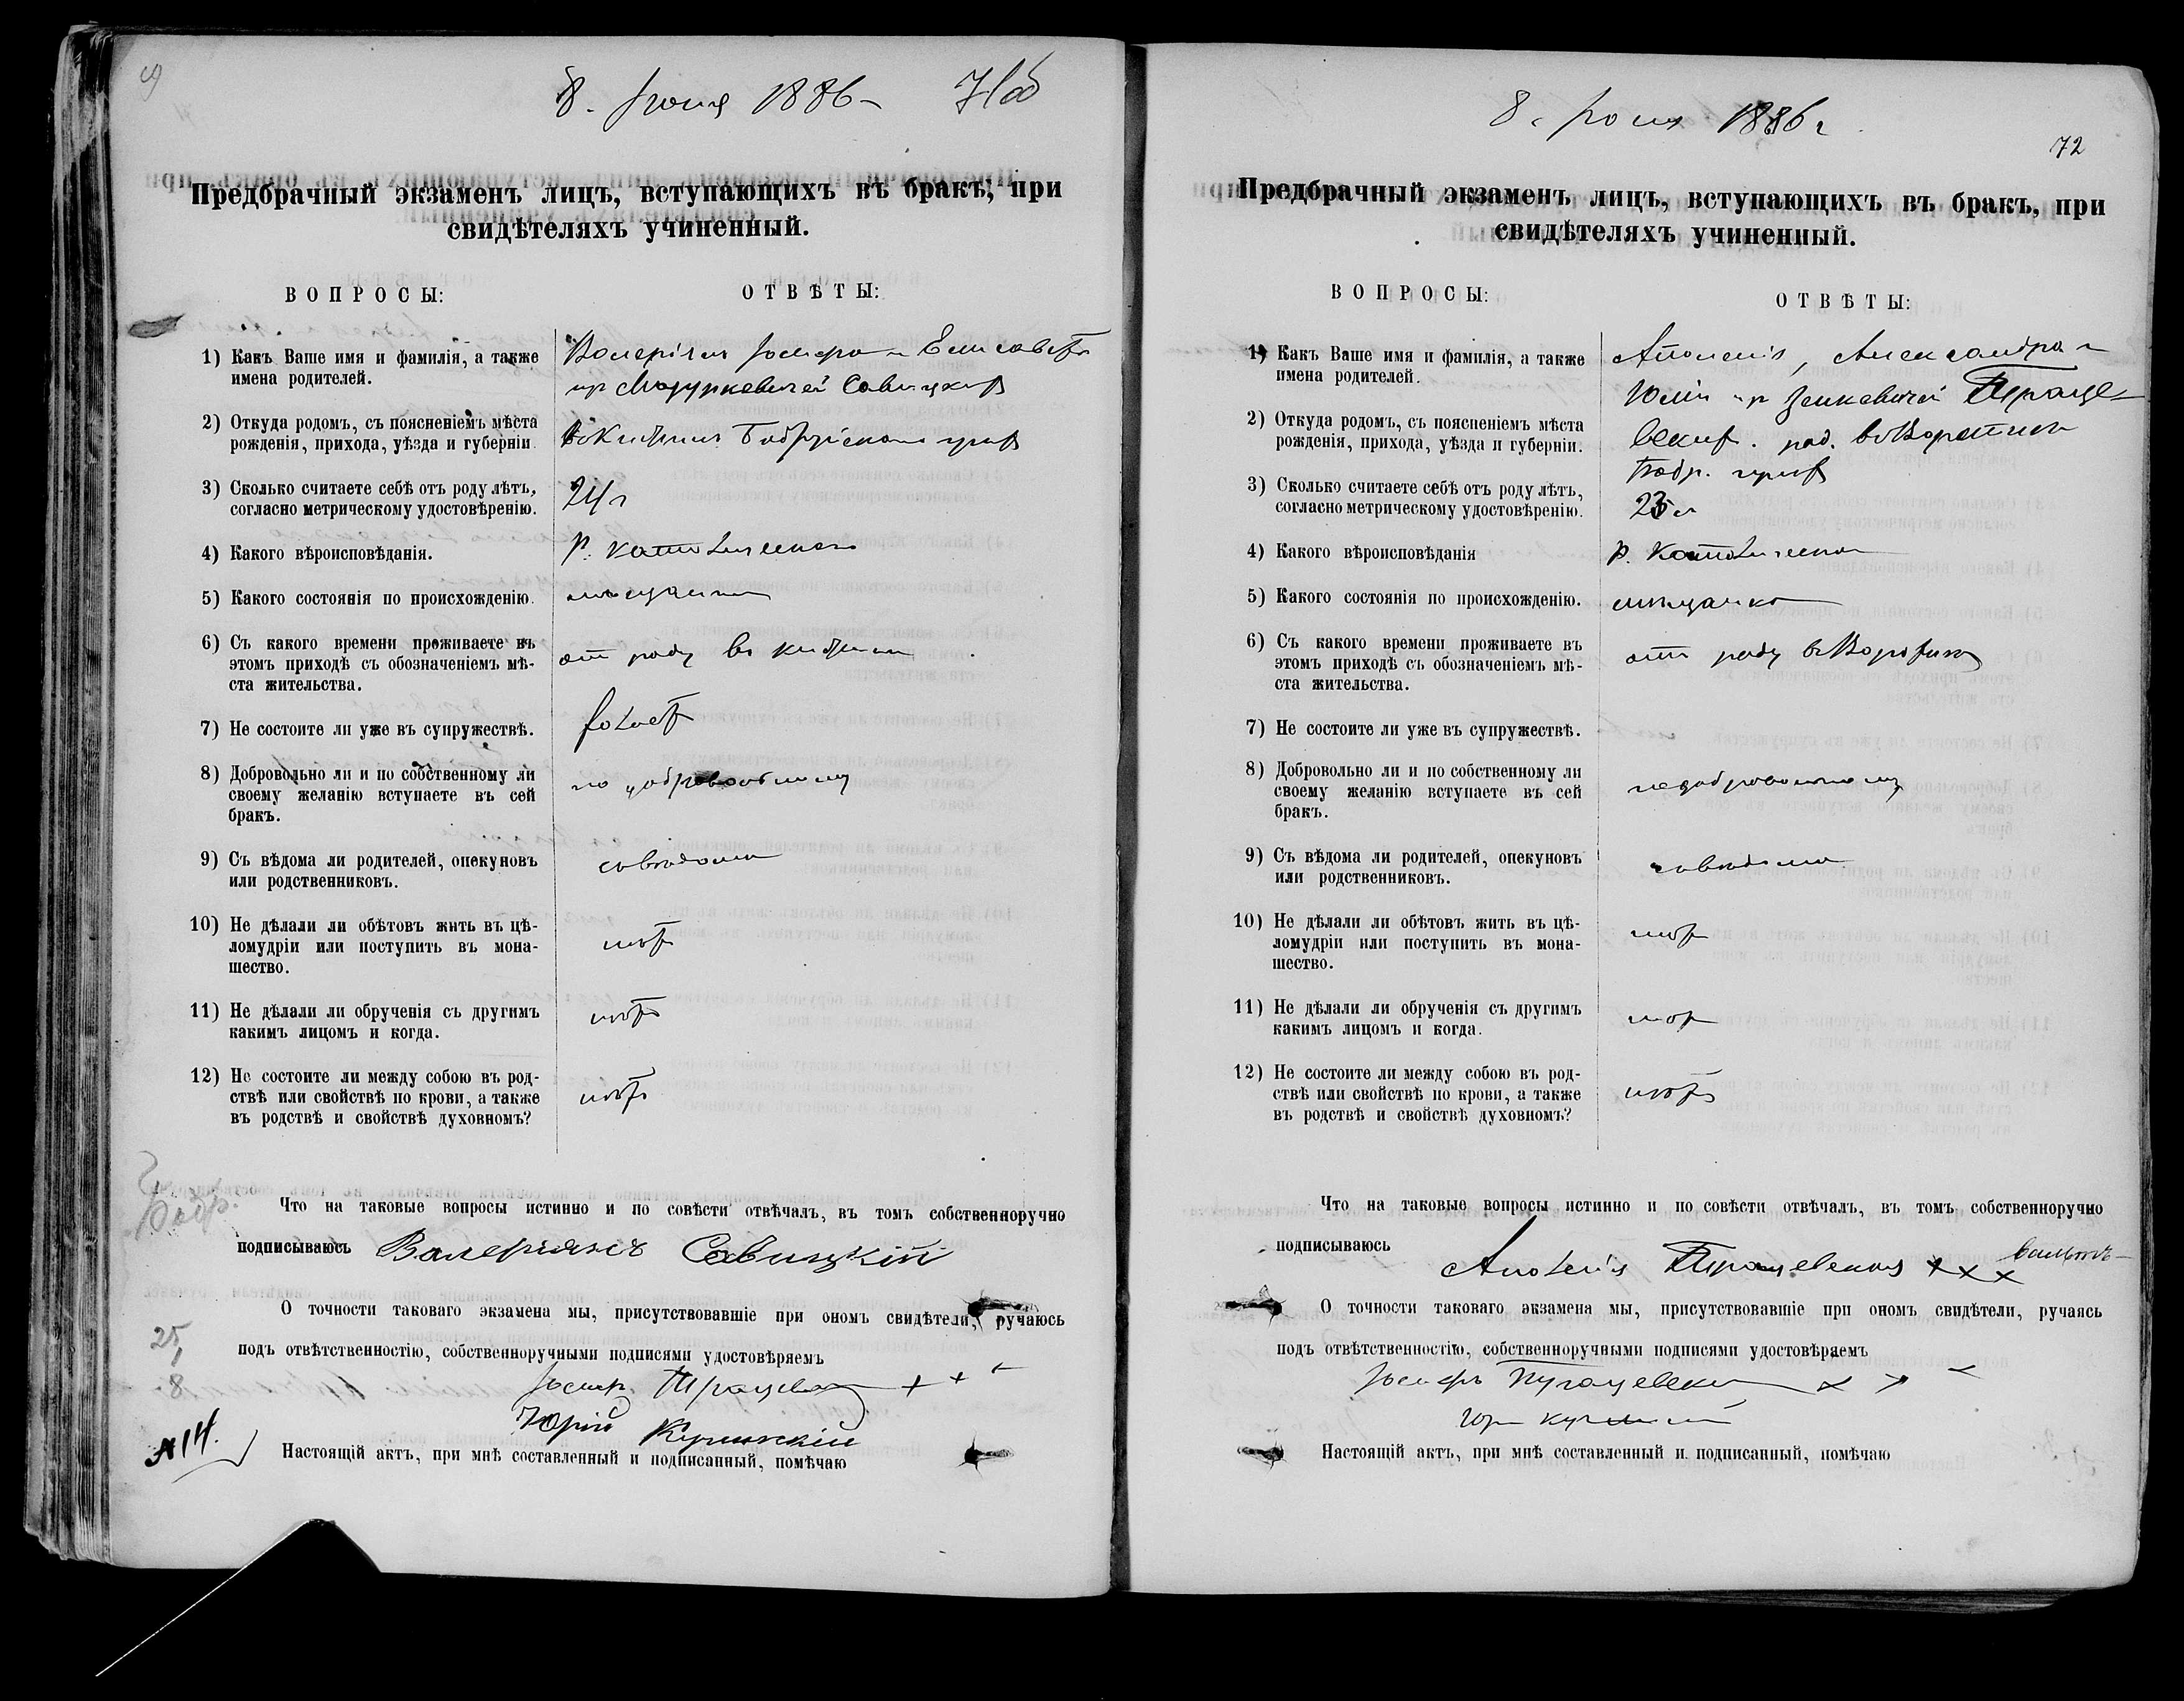 8. Іюня 1886 —
Предбрачный экзаменъ лицъ, вступающихъ въ бракъ, при
свидѣтеляхъ учиненный.
ВОПРОСЫ:
ОТВѢТЫ:
1) Какъ Ваше имя и фамилія, а также
имена родителей.
Валеріанъ Іосифа и Елисаветы
Савицкихъ
2) Откуда родомъ, съ поясненіемъ мѣста
рожденія, прихода, уѣзда и губерніи.
Бобруйскаго прих
3) Сколько считаете себѣ отъ роду лѣтъ,
согласно метрическому удостовѣренію.
24 г
4) Какого вѣроисповѣданія.
р. католическаго
5) Какого состоянія по происхожденію.
мѣщанинъ
6) Съ какого времени проживаете въ
этомъ приходѣ съ обозначеніемъ мѣ-
ста жительства.
отъ роду въ
7) Не состоите ли уже въ супружествѣ.
холостъ
8) Добровольно ли и по собственному ли
своему желанію вступаете въ сей
бракъ.
по добровольному
9) Съ вѣдома ли родителей, опекуновъ
или родственниковъ.
съ вѣдома
10) Не дѣлали ли обѣтовъ жить въ цѣ-
ломудріи или поступить въ мона-
шество.
нѣтъ
11) Не дѣлали ли обрученія съ другимъ
какимъ лицомъ и когда.
нѣтъ
12) Не состоите ли между собою въ род-
ствѣ или свойствѣ по крови, а также
въ родствѣ и свойствѣ духовномъ?
нѣтъ
Бобр.
Что на таковые вопросы истинно и по совѣсти отвѣчалъ, въ томъ собственноручно
подписываюсь Валеріянъ Савицкій
О точности таковаго экзамена мы, присутствовавшіе при ономъ свидѣтели, ручаюсь
подъ отвѣтственностію, собственноручными подписями удостовѣряемъ
25
8
Іосифъ + + +
Юрій Кучинскій
№ 14.
Настоящій актъ, при мнѣ составленный и подписанный, помѣчаю
8. Іюня 1886 г
72
Предбрачный экзаменъ лицъ, вступающихъ въ бракъ, при
свидѣтеляхъ учиненный.
ВОПРОСЫ:
ОТВѢТЫ:
1) Какъ Ваше имя и фамилія, а также
имена родителей.
Аполенія, Александра и
Юліи
2) Откуда родомъ, съ поясненіемъ мѣста
рожденія, прихода, уѣзда и губерніи.
род. въ
Бобр. прих
3) Сколько считаете себѣ отъ роду лѣтъ,
согласно метрическому удостовѣренію.
4) Какого вѣроисповѣданія
р. католическаго
5) Какого состоянія по происхожденію.
мѣщанка
6) Съ какого времени проживаете въ
этомъ приходѣ съ обозначеніемъ мѣ-
ста жительства.
отъ роду въ
7) Не состоите ли уже въ супружествѣ.
8) Добровольно ли и по собственному ли
своему желанію вступаете въ сей
бракъ.
по добровольному
9) Съ вѣдома ли родителей, опекуновъ
или родственниковъ.
съ вѣдома
10) Не дѣлали ли обѣтовъ жить въ цѣ-
ломудріи или поступить въ мона-
шество.
нѣтъ
11) Не дѣлали ли обрученія съ другимъ
какимъ лицомъ и когда.
нѣтъ
12) Не состоите ли между собою въ род-
ствѣ или свойствѣ по крови, а также
въ родствѣ и свойствѣ духовномъ?
нѣтъ
Что на таковые вопросы истинно и по совѣсти отвѣчалъ, въ томъ собственноручно
подписываюсь
Аполенія + × ×
О точности таковаго экзамена мы, присутствовавшіе при ономъ свидѣтели, ручаясь
подъ отвѣтственностію, собственноручными подписями удостовѣряемъ
Іосифъ × × ×
Настоящій актъ, при мнѣ составленный и подписанный, помѣчаю